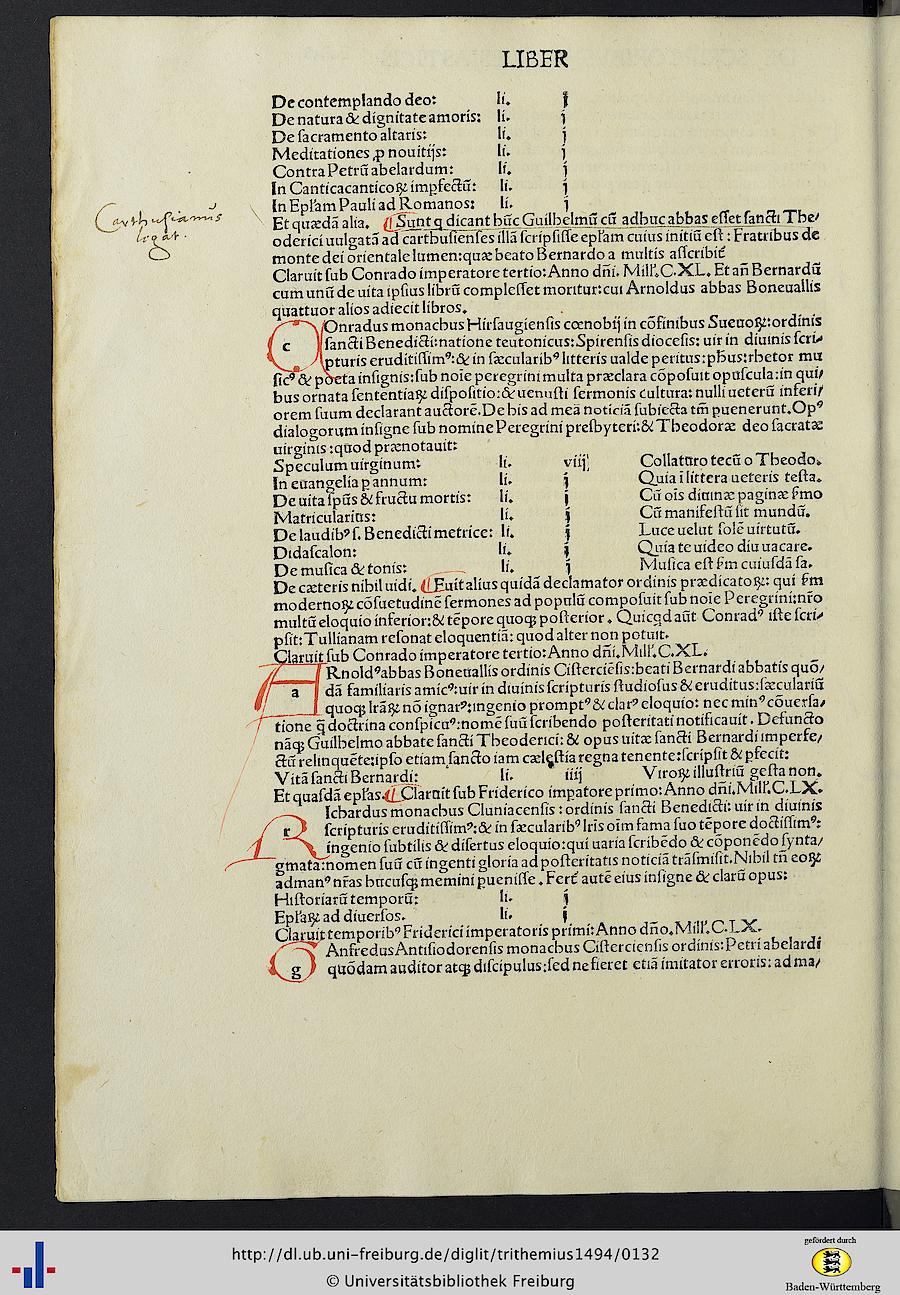 LIBER
De contemplando deo: li. j
De natura & dignitate amoris: li. j
De sacramento altaris: li. j
Meditationes ꝓ nouitijs: li. j
Contra Petrū abelardum: li. j
In Canticacanticoꝝ impfectū: li. j
In Epl'am Pauli ad Romanos: li. j
Et quædā alia. ¶ Sunt q dicant hūc Guilhelmū cū adhuc abbas esset sancti The/
oderici uulgatā ad carthusienses illā scripsisse epl'am cuius initiū est: Fratribus de
monte dei orientale lumen: quæ beato Bernardo a multis asscribit̄
Claruit sub Conrado imperatore tertio: Anno dñi. Mill'. C.XL. Et añ Bernardū
cum unū de uita ipsius librū complesset moritur: cui Arnoldus abbas Boneuallis
quattuor alios adiecit libros.
Carthusianus
legat.
c Onradus monachus Hirsaugiensis cœnobij in cōfinibus Sueuoꝝ: ordinis
sancti Benedicti: natione teutonicus: Spirensis diocesis: uir in diuinis scri/
pturis eruditissimꝰ: & in sæcularibꝰ litteris ualde peritus: ph̄us: rhetor mu
sicꝰ & poeta insignis: sub noīe peregrini multa præclara cōposuit opuscula: in qui/
bus ornata sententiaꝝ dispositio: & uenusti sermonis cultura: nulli ueterū inferi/
orem suum declarant auctorē. De his ad meā noticiā subiecta tm̄ puenerunt. Opꝰ
dialogorum insigne sub nomine Peregrini presbyteri: & Theodoræ deo sacratæ
uirginis: quod prænotauit:
Speculum uirginum: li. viij Collaturo tecū o Theodo.
In euangelia p annum: li. j Quia ī littera ueteris testa.
De uita spūs & fructu mortis: li. j Cū oīs diuinæ paginæ sm̄o
Matricularius: li. j Cū manifestū sit mundū.
De laudibꝰ s. Benedicti metrice: li. j Luce uelut solē uirtutū.
Didascalon: li. j Quia te uideo diu uacare.
De musica & tonis: li. j Musica est sm̄ cuiusdā sa.
De cæteris nihil uidi. ¶ Fuit alius quidā declamator ordinis prædicatoꝝ: qui sm̄
modernoꝝ cōsuetudinē sermones ad populū composuit sub noīe Peregrini: nr̄o
multū eloquio inferior: & tēpore quoqꝫ posterior. Quicqd aūt Conradꝰ iste scri/
psit: Tullianam resonat eloquentiā: quod alter non potuit.
Claruit sub Conrado imperatore tertio: Anno dñi. Mill'. C.XL.
a Rnoldꝰ abbas Boneuallis ordinis Cisterciēsis: beati Bernardi abbatis quō/
dā familiaris amicꝰ: uir in diuinis scripturis studiosus & eruditus: sæculariū
quoqꝫ lr̄aꝝ nō ignarꝰ: ingenio promptꝰ & clarꝰ eloquio: nec minꝰ cōuersa/
tione q̄ doctrina conspicuꝰ: nomē suū scribendo posteritati notificauit. Defuncto
nāqꝫ Guilhelmo abbate sancti Theoderici: & opus uitæ sancti Bernardi imperfe/
ctū relinquēte: ipso etiam sancto iam cælestia regna tenente: scripsit & pfecit:
Vitā sancti Bernardi: li. iiij Viroꝝ illustriū gesta non.
Et quasdā epl'as. ¶ Claruit sub Friderico impatore primo: Anno dñi. Mill'. C.LX.
r Ichardus monachus Cluniacensis: ordinis sancti Benedicti: uir in diuinis
scripturis eruditissimꝰ: & in sæcularibꝰ lr̄is oīm fama suo tēpore doctissimꝰ:
ingenio subtilis & disertus eloquio: qui uaria scribēdo & cōponēdo synta/
gmata: nomen suū cū ingenti gloria ad posteritatis noticiā trāsmisit. Nihil tn̄ eoꝝ
ad manꝰ nr̄as hucusqꝫ memini puenisse. Fert̄ autē eius insigne & clarū opus:
Historiarū temporū: li. j
Epl'aꝝ ad diuersos. li. j
Claruit temporibꝰ Friderici imperatoris primi: Anno dño. Mill'. C.LX.
g Anfredus Antisiodorensis monachus Cisterciensis ordinis: Petri abelardi
quōdam auditor atqꝫ discipulus: sed ne fieret etiā imitator erroris: ad ma/
http://dl.ub.uni-freiburg.de/diglit/trithemius1494/0132
© Universitätsbibliothek Freiburg
gefördert durch
Baden-Württemberg